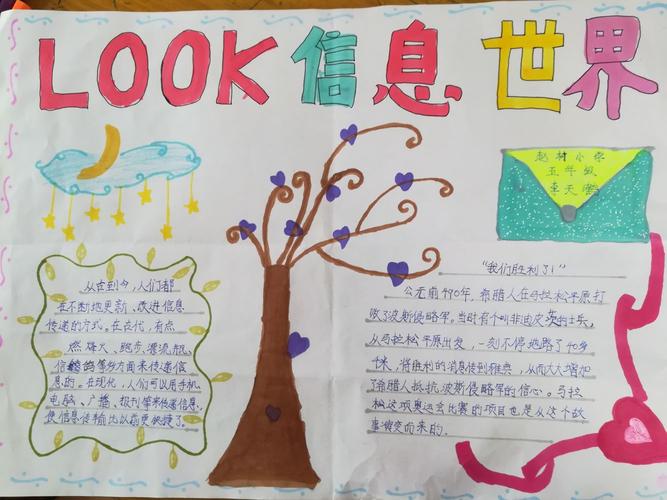 LOOK信息世界
赵村小学
五年级
李天
从古到今，人们都
在不断地更新、改进信息
传递的方式。在古代，有点
燃烽火、跑步、漂流瓶、
信鸽等多方面来传递信
息的。在现代，人们可以用手机、
电脑、广播、报刊等来传递信息，
使信息传输比以前更快捷了。
“我们胜利了！”
公元前490年，希腊人在马拉松平原打
败了波斯侵略军。当时有个叫非迪皮茨的士兵，
从马拉松平原出发，一刻不停地跑了40多
千米，将胜利的消息传到雅典，从而大大增加
了希腊人抵抗波斯侵略军的信心。马拉
松这项奥运会比赛的项目也是从这个故
事演变而来的。